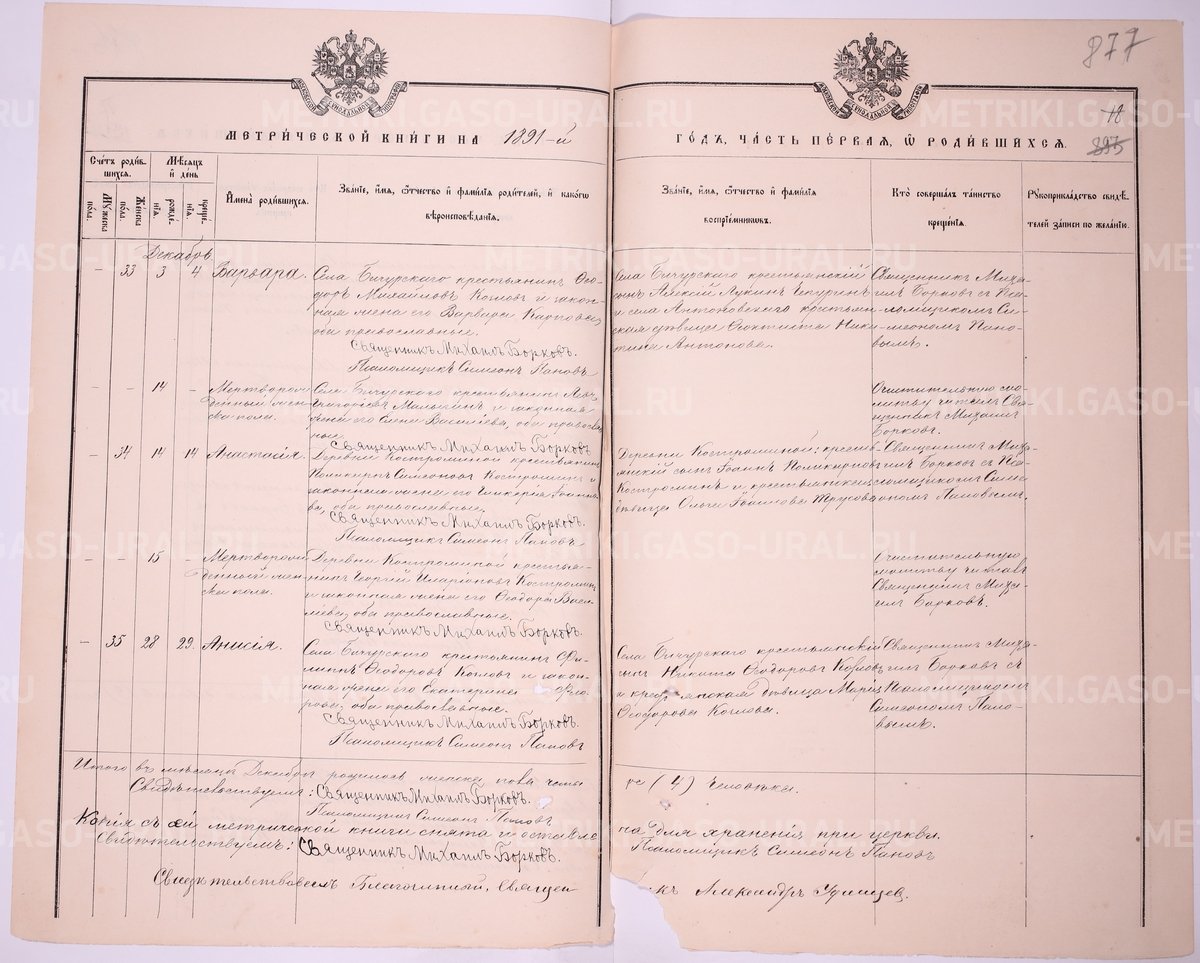 877
18
893
МЕТРИ́ЧЕСКОЙ КНИ́ГИ НА 1891-й
ГОДЪ, ЧА́СТЬ ПЕ́РВАЯ, Ѡ РОДИ́ВШИХСЯ.
Сче́тъ роди́в-
шихся.
Мѣ́сяцъ
и де́нь
Му́жеска по́ла.
Же́нска по́ла.
рожде́-
нія.
креще́-
нія.
Имена̀ роди́вшихся.
Зва́ніе, и́мя, ѻ́тчество и фами́лія роди́телей, и како́гѡ
вѣроисповѣ́данія.
Зва́ніе, и́мя, ѻ́тчество и фами́лія
воспріе́мниковъ.
Кто̀ соверша́лъ та́инство
креще́нія.
Рукоприкла́дство свидѣ́-
телей за́писи по жела́нію.
Декабрь
- 33 3 4 Варвара.
Села Бичурскаго крестьянинъ Ѳео-
доръ Михайловъ Козловъ и закон-
ная жена его Варвара Карповa,
оба православные.
Священникъ Михаилъ Борковъ.
Псаломщикъ Симеонъ Пановъ
Села Бичурскаго крестьянскій
сынъ Алексій Лукинъ Чепуринъ
и села Антоновскаго крестьян-
ская дѣвица Ѳеоктиста Ники-
тина Антонова.
Священникъ Миха-
илъ Борковъ съ Пса-
ломщикомъ Си-
меономъ Пано-
вымъ.
- - 14 - Мертворож-
денный жен-
ска пола.
Села Бичурскаго крестьянинъ
Григорьевъ Малыгинъ и законная
жена его Васильева, оба православ-
ные.
Священникъ Михаилъ Борковъ
Очистительную мо-
литву читалъ Свя-
щенникъ Михаилъ
Борковъ.
- 34 14 14 Анастасія.
Деревни Костроминой крестьянинъ
Поликарпъ Симеоновъ Костроминъ и
законная жена его Гликерія Іоанно-
ва, оба православные.
Священникъ Михаилъ Борковъ.
Псаломщикъ Симеонъ Пановъ
Деревни Костроминой: кресть-
янскій сынъ Іоаннъ Поликарповъ
Костроминъ и крестьянская
дѣвица Ольга Іоаннова Трусова
Священникъ Миха-
илъ Борковъ съ Пса-
ломщикомъ Симе-
ономъ Пановымъ.
- - 15 - Мертворож-
денный жен-
ска пола.
Деревни Костроминой крестья-
нинъ Георгій Иларіоновъ Костроминъ
и законная жена его Ѳеодора Васи-
льева, оба православные.
Священникъ Михаилъ Борковъ.
Очистительную
молитву читалъ
Священникъ Миха-
илъ Борковъ.
- 35 28 29 Анисія.
Села Бичурскаго крестьянинъ Фи-
липпъ Ѳеодоровъ Козловъ и закон-
ная жена его Екатерина Фло-
рова, оба православные.
Священникъ Михаилъ Борковъ.
Псаломщикъ Симеонъ Пановъ
Села Бичурскаго крестьянскій
сынъ Никита Ѳеодоровъ Козловъ
и крестьянская дѣвица Марія
Ѳеодорова Козлова.
Священникъ Миха-
илъ Борковъ съ
Псаломщикомъ
Симеономъ Пано-
вымъ.
Итого въ мѣсяцѣ Декабрѣ родилось женска пола четы
ре (4) человѣка.
Свидѣтельствуемъ: Священникъ Михаилъ Борковъ.
Псаломщикъ Симеонъ Пановъ
Копія съ сей метрической книги снята и оставле
на для храненія при церкви.
Свидѣтельствуемъ: Священникъ Михаилъ Борковъ.
Псаломщикъ Симеонъ Пановъ
Свидѣтельствовалъ Благочинный, Священ
къ Александръ Удинцев.
METRIKI.GASO-URAL.RU